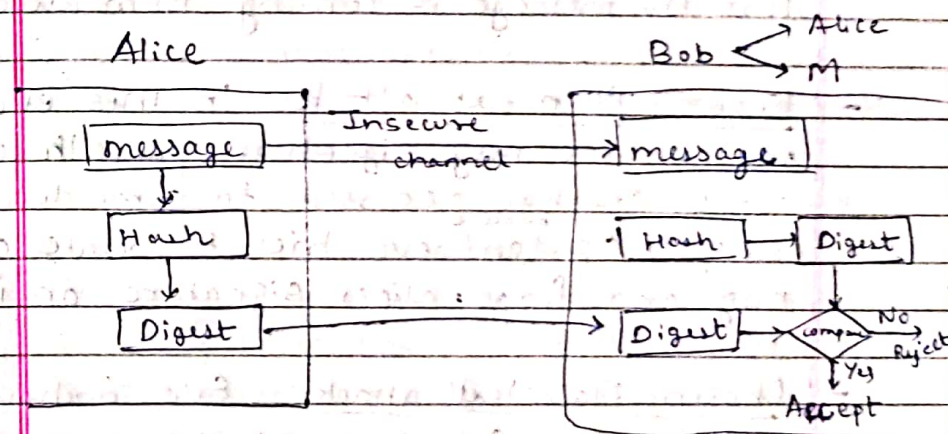 Alice
Bob
Alice
M
Insecure
channel
message
message
Hash
Hash
Digest
Digest
Digest
compare
No
Reject
Yes
Accept